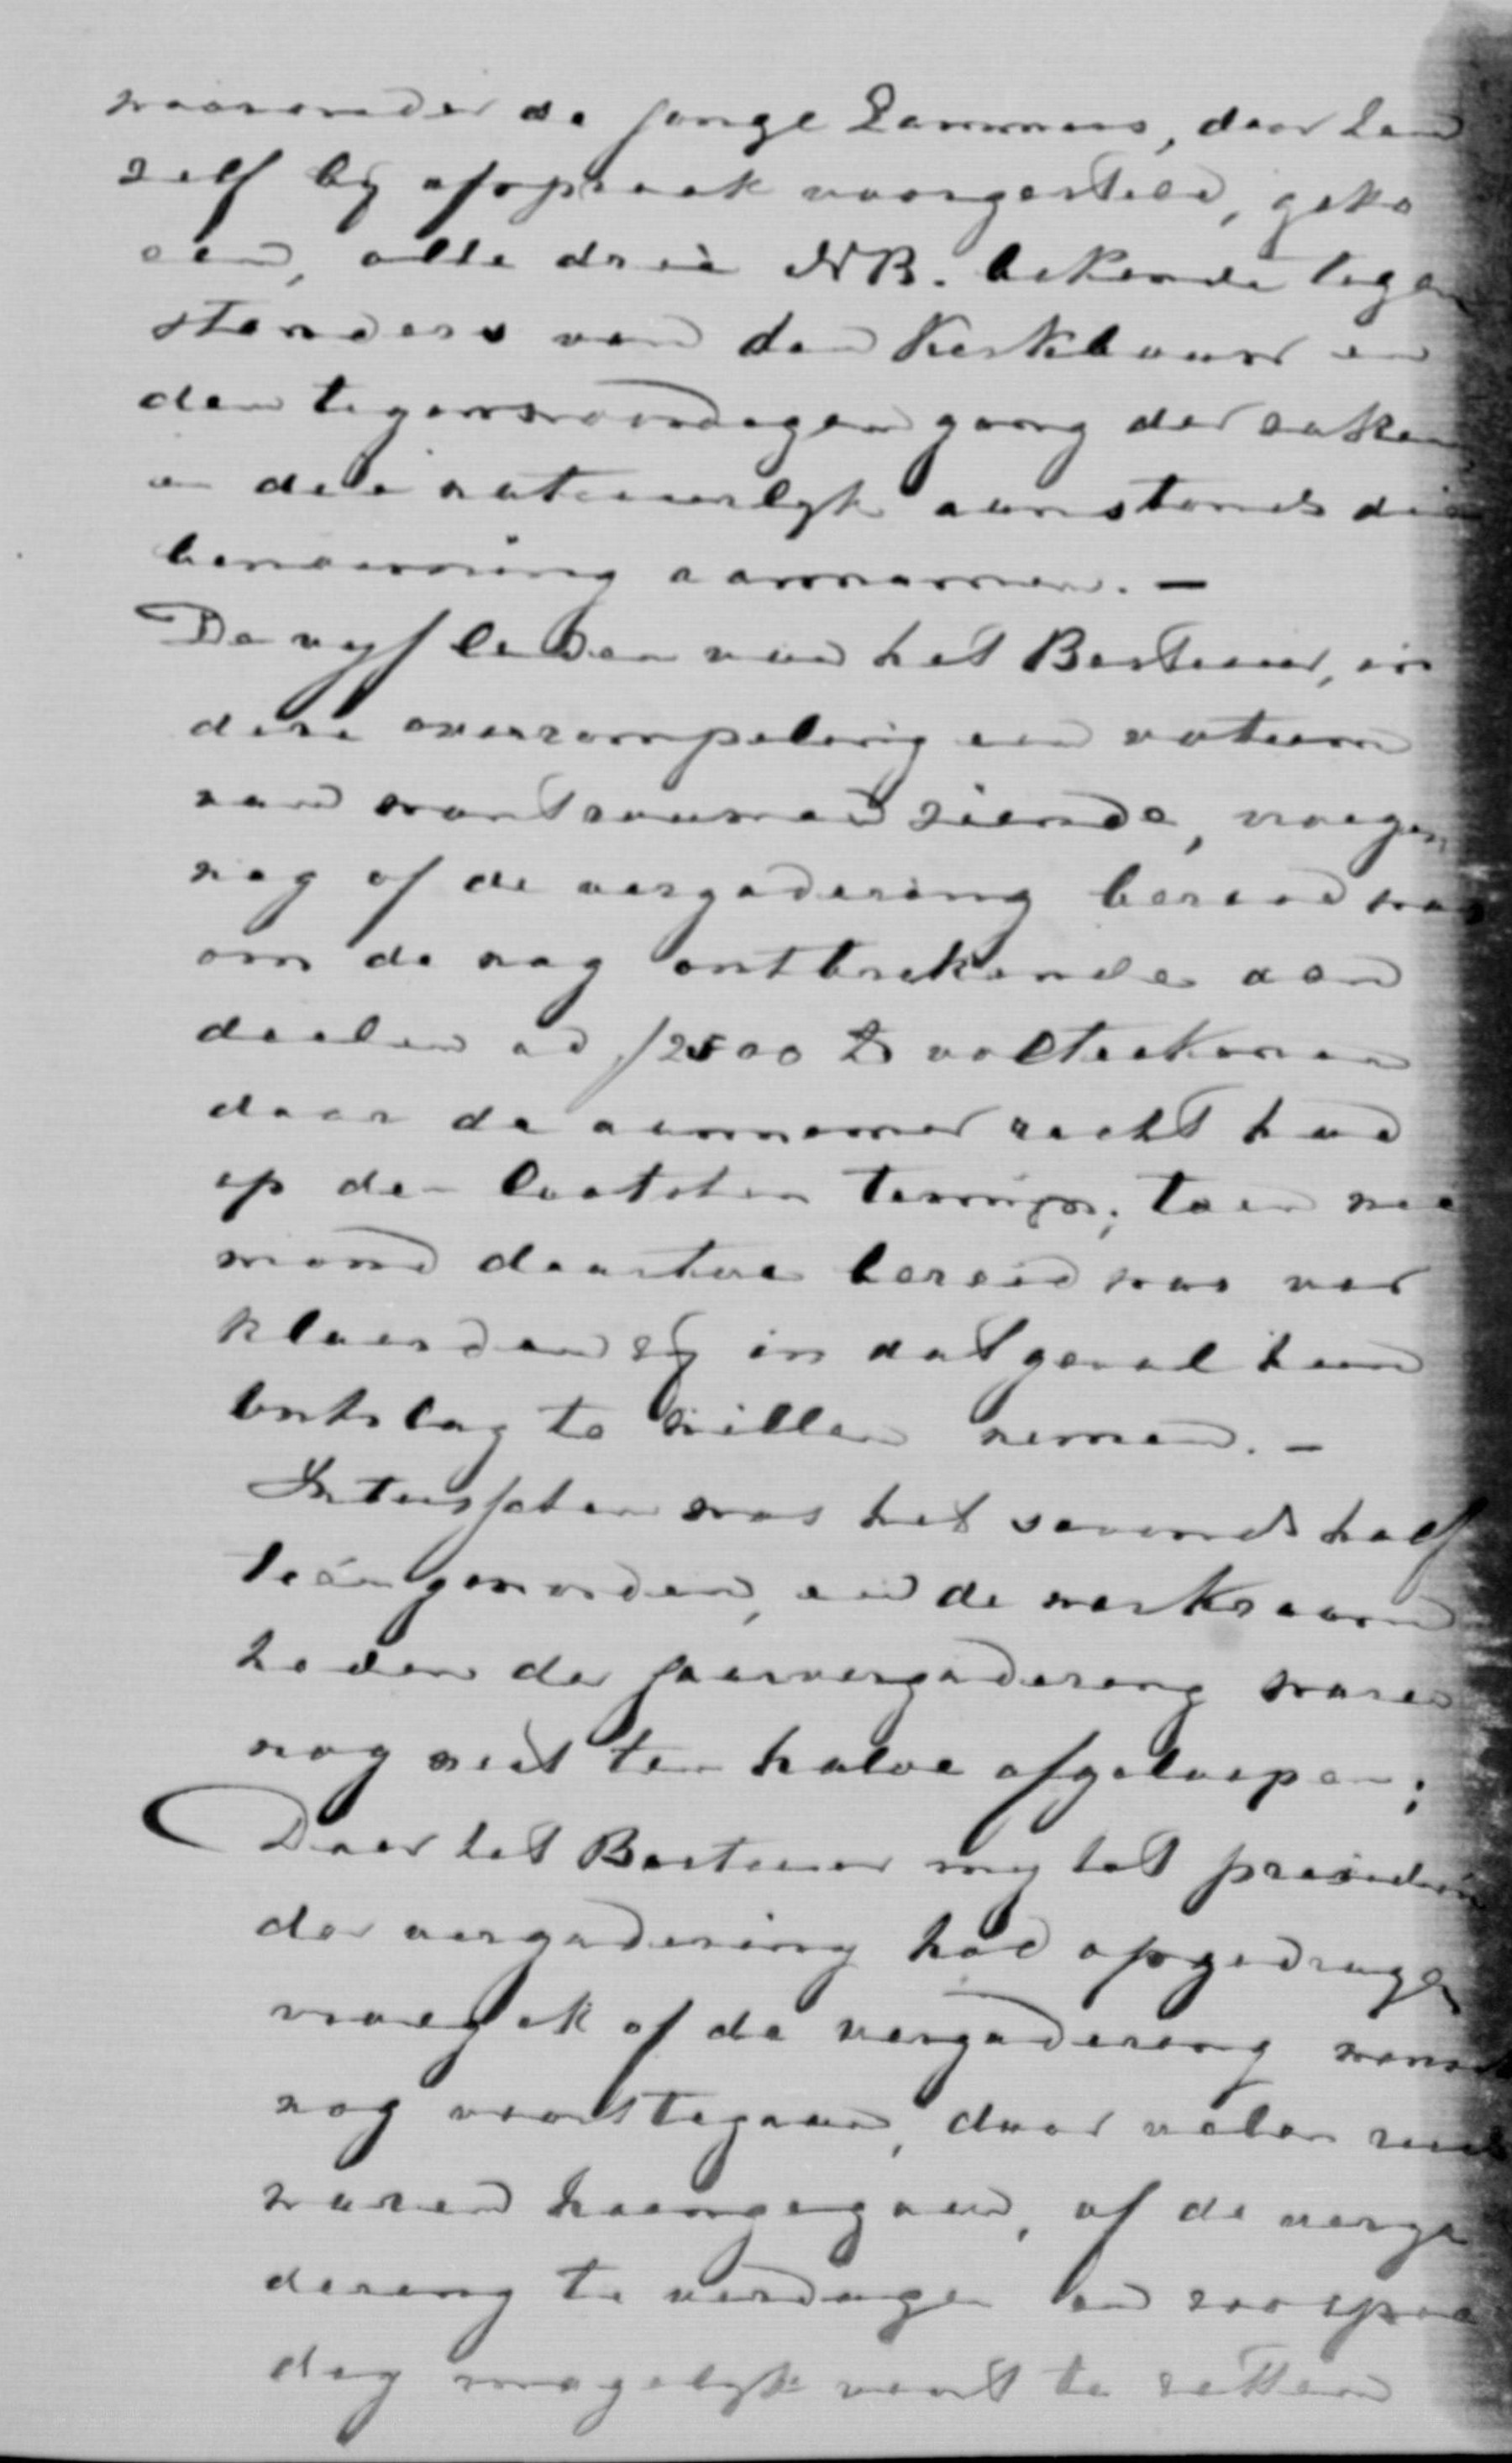 waaronder de jonge Lammers, door hem
zelf by afspraak voorgesteld, geko
zen, alle drie NB. bekende tegen
standers van den Kerkbouw en
den tegenwoordigen gang der zaken
en die natuurlyk aanstonds die
benoeming aannamen. —
De vyf leden van het Bestuur, in
deze overrompeling een votum
van wantrouwen ziende, vroegen
nog of de vergadering bereid was
om de nog ontbrekende aan
deelen ad ƒ2500 te voltekenen
daar de aannemer recht had
op den laatsten termijn; toen nie
mand daartoe bereid was ver
klaarden zy in dat geval hun
ontslag te willen nemen. —
Intusschen was het savonds half
tien geworden, en de werkzaam
heden der jaarvergadering waren
nog niet ten halve afgeloopen;
Daar het Bestuur my het presideren
der vergadering had opgedragen
vroeg ik of de vergadering wensch
nog voort te gaan, daar velen reeds
waren heengegaan, of de verga
dering te verdagen en zoo spoe
dig mogelyk voort te zetten